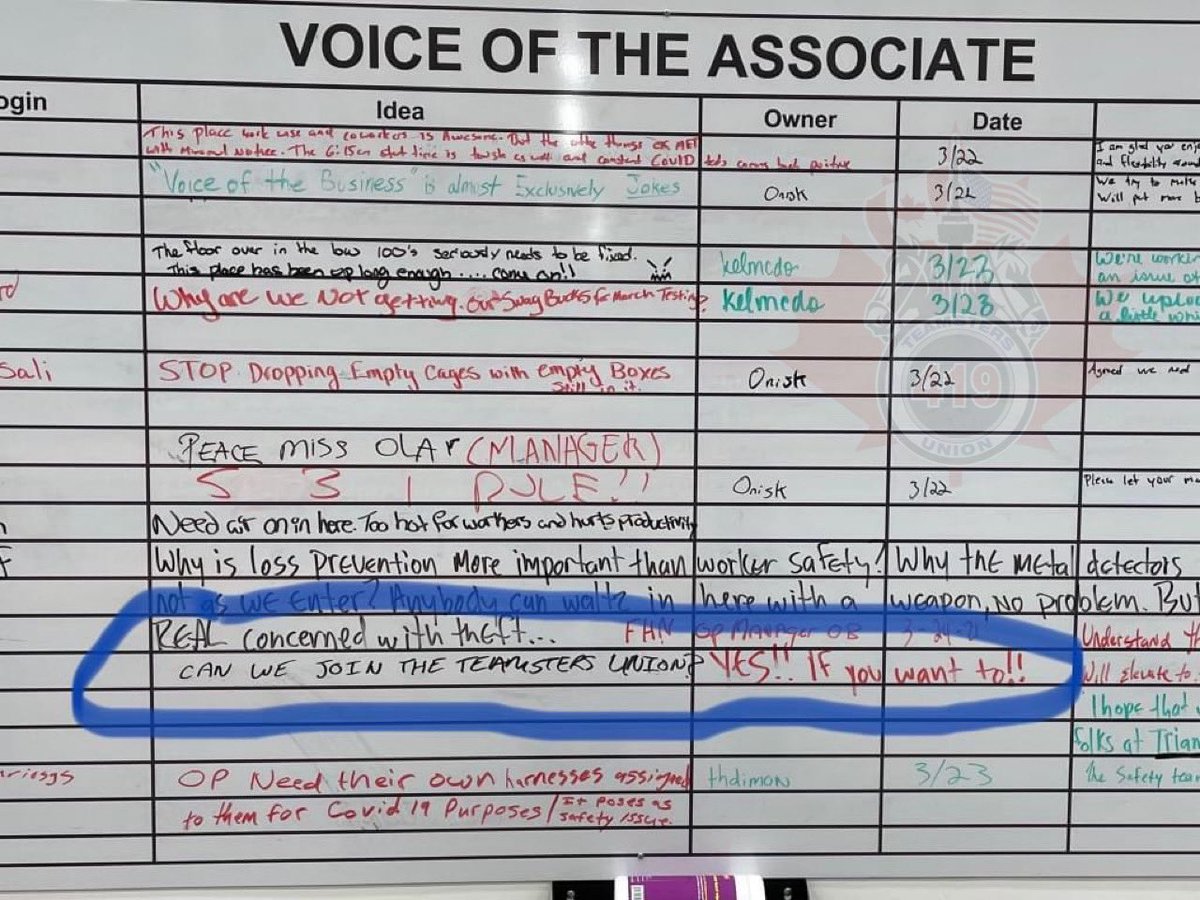 VOICE OF THE ASSOCIATE
ogin Idea Owner Date
This place work use and coworkers is Awesome. But the other things ex MET I am glad you enj
with Minimal Notice. The 6:15am start time is tough as well and constant COVID tests coming back positive 3/22 and flexibility
"Voice of the Business" is almost Exclusively Jokes Onisk 3/22 We try to make
Will put more b
The floor over in the low 100's seriously needs to be fixed.
This place has been up long enough .... come on!! kelmcdo 3/23 We're workin
an issue of
rd Why are we Not getting our Swag Bucks for March Testing? kelmcdo 3/23 We uploa
a little whi
Sali STOP Dropping Empty Cages with empty Boxes Onisk 3/22 Agreed we need
Still in it.
TEAMSTERS
419
UNION
PEACE MISS OLAY (MANAGER)
5 3 1 RULE!! Onisk 3/22 Please let your ma
Need air on in here. Too hot for workers and hurts productivity
f Why is loss prevention more important than worker safety? Why the metal detectors
not as we enter? Anybody can waltz in here with a weapon, no problem. But
REAL concerned with theft... FHN Op Manager OB 3-24-21 Understand th
CAN WE JOIN THE TEAMSTERS UNION? YES!! If you want to!! Will Elevate to
I hope that
folks at Trian
riesgs OP Need their own harnesses assigned thdimon 3/23 The Safety team
to them for Covid 19 Purposes / It poses as
safety issue.